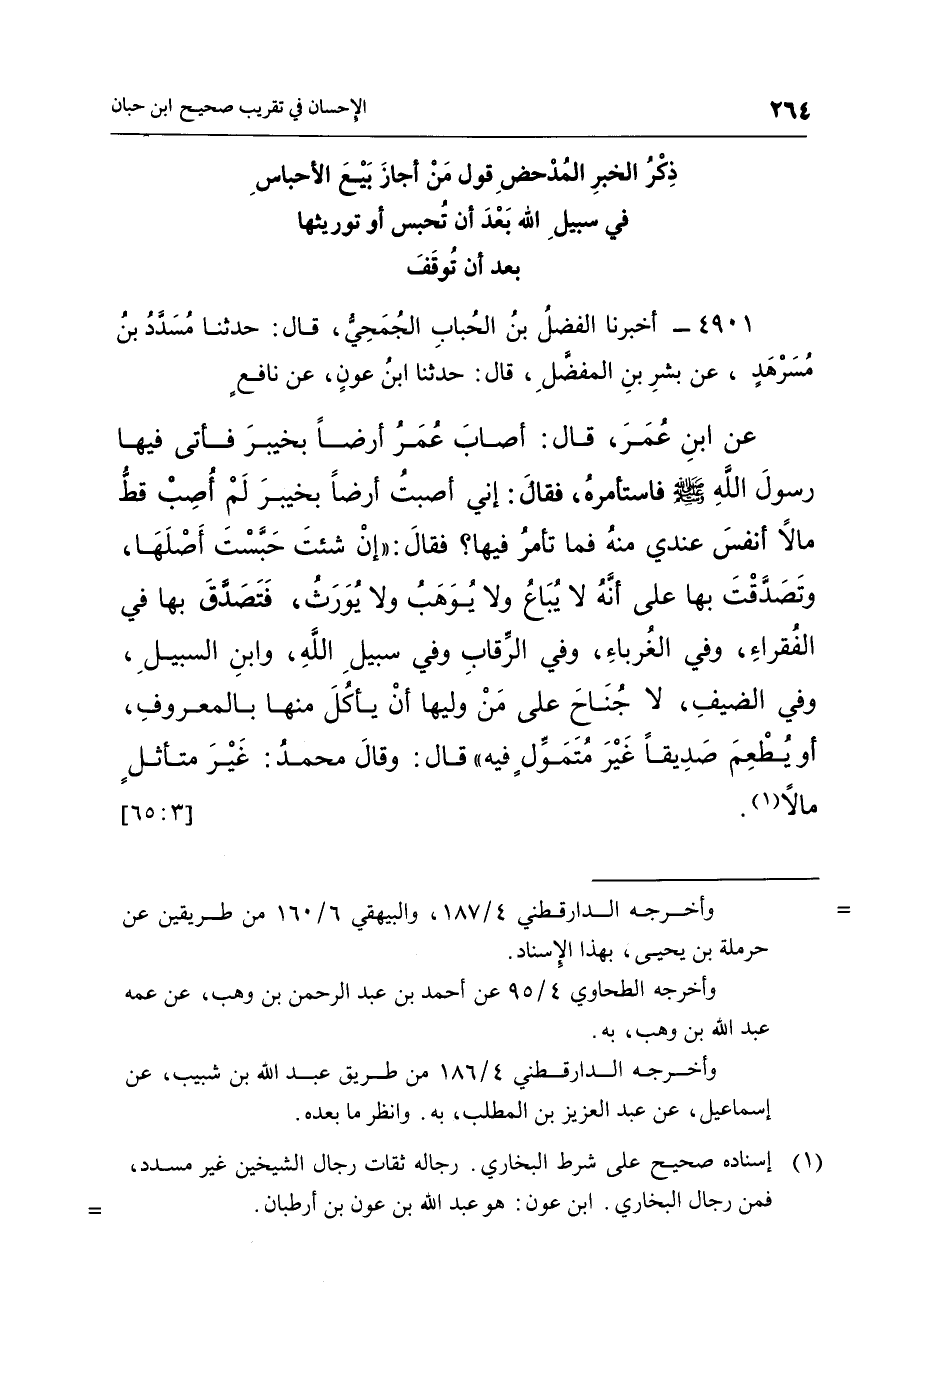 ٢٦٤ الإحسان في تقريب صحيح ابن حبان
ذِكْرُ الخبرِ المُدْحضِ قول مَنْ أجازَ بَيْعَ الأحباسِ
في سبيلِ الله بَعْدَ أن تُحبس أو توريثها
بعد أن تُوقَفَ
٤٩٠١ ـ أخبرنا الفضلُ بنُ الحُبابِ الجُمَحِيُّ، قال: حدثنا مُسَدَّدُ بنُ
مُسَرْهَدٍ، عن بشرِ بنِ المفضَّلِ، قال: حدثنا ابنُ عونٍ، عن نافعٍ
عن ابنِ عُمَرَ، قال: أصابَ عُمَرُ أرضاً بخيبرَ فأتى فيها
رسولَ اللَّهِ ﷺ فاستأمرهُ، فقالَ: إني أصبتُ أرضاً بخيبرَ لَمْ أُصِبْ قطُّ
مالاً أنفسَ عندي منهُ فما تأمرُ فيها؟ فقالَ: «إنْ شئتَ حَبَّسْتَ أَصْلَهَا،
وتَصَدَّقْتَ بها على أنَّهُ لا يُبَاعُ ولا يُوَهَبُ ولا يُوَرَثُ، فَتَصَدَّقَ بها في
الفُقراءِ، وفي الغُرباءِ، وفي الرِّقابِ وفي سبيلِ اللَّهِ، وابنِ السبيلِ،
وفي الضيفِ، لا جُنَاحَ على مَنْ وليها أنْ يأكُلَ منها بالمعروفِ،
أو يُطْعِمَ صَدِيقاً غَيْرَ مُتَمَوِّلٍ فيه» قال: وقالَ محمدُ: غَيْرَ متأثلٍ
مالاً(١). [٣: ٦٥]
= وأخرجه الدارقطني ٤/١٨٧، والبيهقي ٦/١٦٠ من طريقين عن
حرملة بن يحيى، بهذا الإسناد.
وأخرجه الطحاوي ٤/٩٥ عن أحمد بن عبد الرحمن بن وهب، عن عمه
عبد الله بن وهب، به.
وأخرجه الدارقطني ٤/١٨٦ من طريق عبد الله بن شبيب، عن
إسماعيل، عن عبد العزيز بن المطلب، به. وانظر ما بعده.
(١) إسناده صحيح على شرط البخاري. رجاله ثقات رجال الشيخين غير مسدد،
فمن رجال البخاري. ابن عون: هو عبد الله بن عون بن أرطبان. =